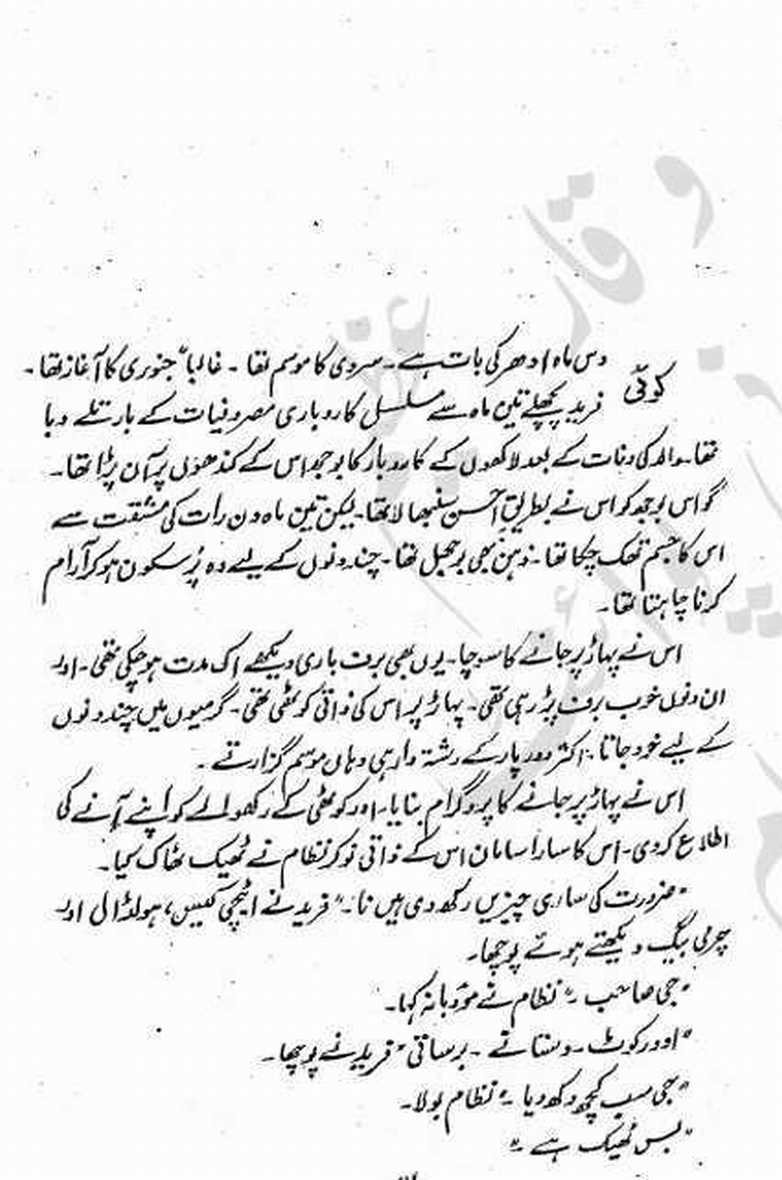 کوئی دس ماہ ادھر کی بات ہے۔ سردی کا موسم تھا ۔ غالباً جنوری کا آغاز تھا ۔
فرید پچھلے تین ماہ سے مسلسل کاروباری مصروفیات کے بار تلے دبا
تھا۔ والد کی وفات کے بعد لاکھوں کے کاروبار کا بوجھ اس کے کندھوں پر آن پڑا تھا۔
گو اس بوجھ کو اس نے بطریقِ احسن سنبھالا تھا۔ لیکن تین ماہ دن رات کی مشقت سے
اس کا جسم تھک چکا تھا ۔ ذہن بھی بوجھل تھا ۔ چند دنوں کے لیے وہ پُر سکون ہو کر آرام
کرنا چاہتا تھا ۔
اس نے پہاڑ پر جانے کا سوچا۔ یوں بھی برف باری دیکھے اک مدت ہو چکی تھی ۔ اور
ان دنوں خوب برف پڑ رہی تھی۔ پہاڑ پر اس کی ذاتی کوٹھی تھی ۔ گرمیوں میں چند دنوں
کے لیے خود جاتا ۔ اکثر دور پار کے رشتہ دار ہی وہاں موسم گزارتے ۔
اس نے پہاڑ پر جانے کا پروگرام بنایا۔ اور کوٹھی کے رکھوالے کو اپنے آنے کی
اطلاع کر دی۔ اس کا سارا سامان اس کے ذاتی نوکر نظام نے ٹھیک ٹھاک کیا۔
"ضرورت کی ساری چیزیں رکھ دی ہیں نا۔" فرید نے اٹیچی کیس، ہولڈال اور
چرمی بیگ دیکھتے ہوئے پوچھا۔
"جی صاحب ۔" نظام نے مؤدبانہ کہا۔
"اوورکوٹ ۔ دستانے ۔ برساتی" فرید نے پوچھا۔
"جی سب کچھ رکھ دیا ۔" نظام بولا۔
"بس ٹھیک ہے ۔"